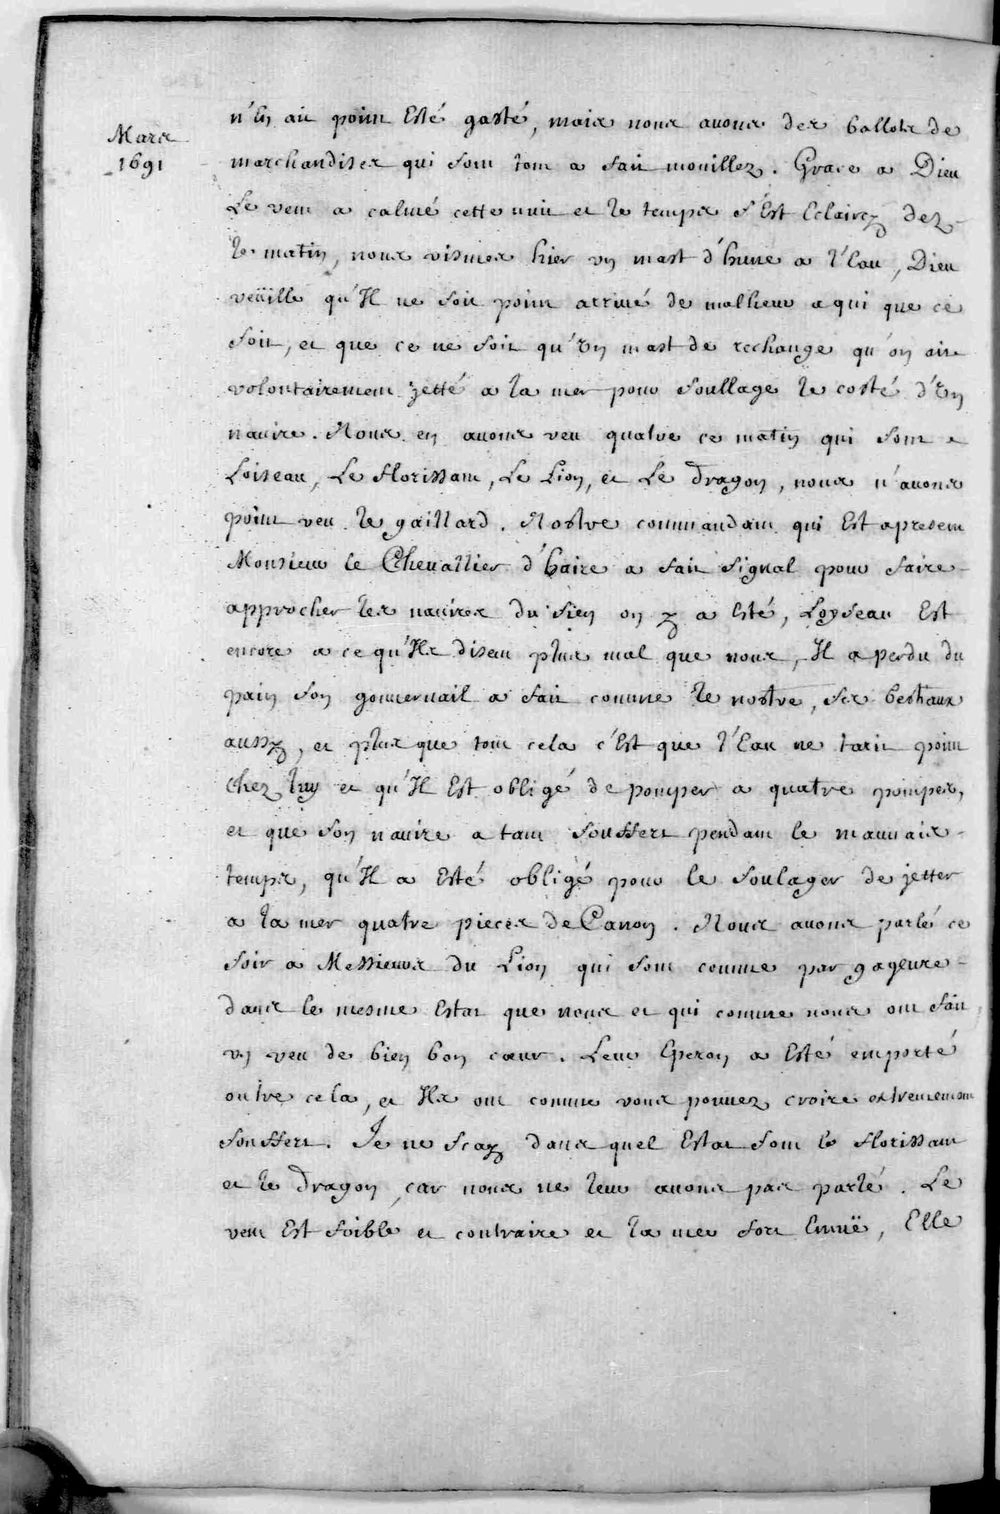 Mars
1691
n'En ait point Esté gasté, mais nous auons des ballots de
marchandises qui sont tout a fait mouillez. Grace a Dieu
Le vent a calmé cette nuit et le temps s'Est Eclaircy dez
le matin, nous vismes hier vn mast d'hune a l'Eau, Dieu
veüille qu'Il ne soit point arriué de malheur a qui que ce
soit, et que ce ne soit qu'Vn mast de rechange qu'on ait
volontairement jetté a la mer pour soullage le costé d'Vn
nauire. Nous en auons veu quatre ce matin qui sont
Loiseau, Le florissant, Le Lion, et Le Dragon, nous n'auons
point veu le gaillard. Nostre commandant qui Est apresent
Monsieur le Cheuallier d'haire a fait signal pour faire
approcher les nauires du sien on y a Esté, Loyseau Est
encore a ce qu'Ils disent plus mal que nous, Il a perdu du
pain son gouuernail a fait comme le nostre, ses bestiaux
aussy, et plus que tout cela c'Est que l'Eau ne tarit point
chez luy et qu'Il Est obligé de pomper a quatre pompes,
et que son nauire a tant souffert pendant le mauuais
temps, qu'Il a Esté obligé pour le soulager de jetter
a la mer quatre pieces de Canon. Nous auons parlé ce
soir a Messieurs du Lion qui sont comme par gageure
dans le mesme Estat que nous et qui comme nous ont fait
vn veu de bien bon cœur. Leur Eperon a Esté emporté
outre cela, et Ils ont comme vous pouuez croire extremement
souffert. Je ne scay dans quel Estat sont le florissant
et le Dragon, car nous ne leur auons pas parlé. Le
vent Est foible et contraire et la mer fort Emuë, Elle